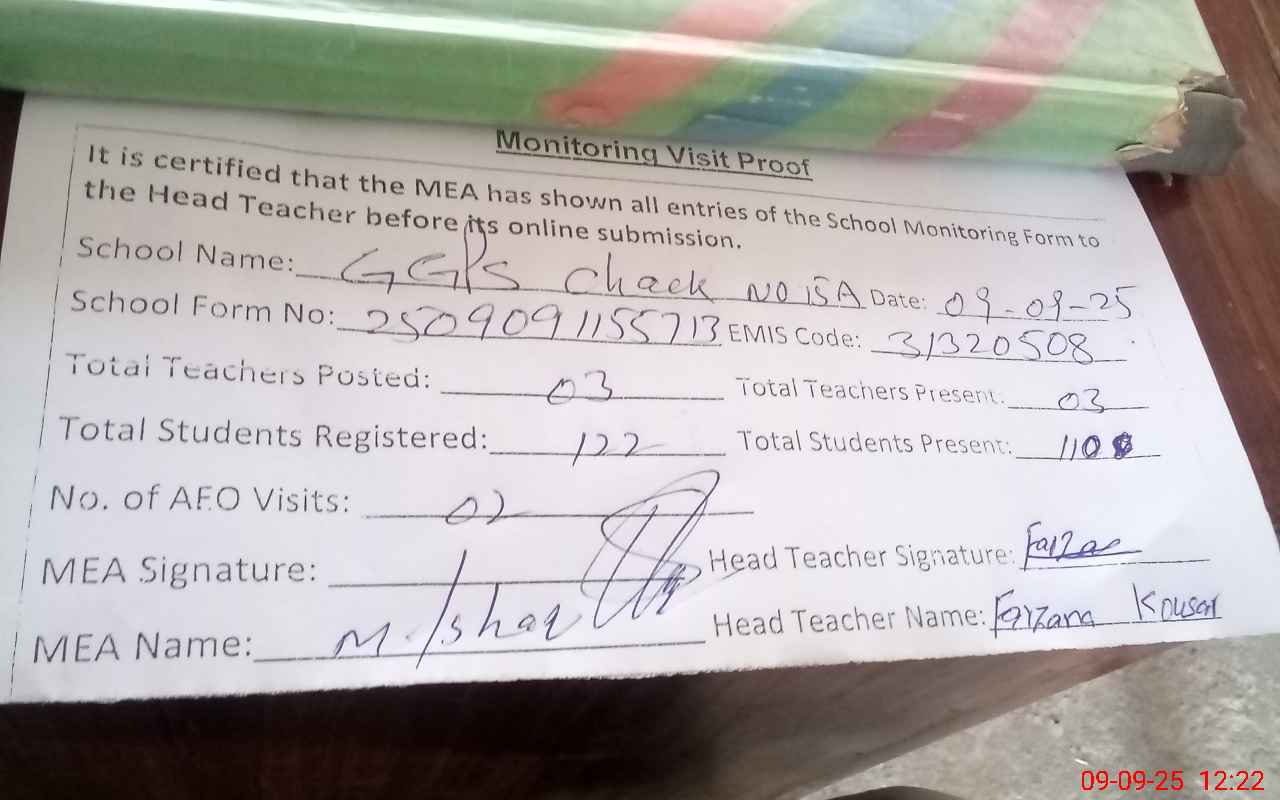 Monitoring Visit Proof
It is certified that the MEA has shown all entries of the School Monitoring Form to
the Head Teacher before its online submission.
School Name: GGPS Chack NO 15A Date: 09-09-25
School Form No: 2509091155713 EMIS Code: 31320508
Total Teachers Posted: 03 Total Teachers Present: 03
Total Students Registered: 122 Total Students Present: 110
No. of AEO Visits: 02
MEA Signature: Head Teacher Signature: Farzana
MEA Name: M. Ishaq Head Teacher Name: Farzana Kousar
09-09-25 12:22